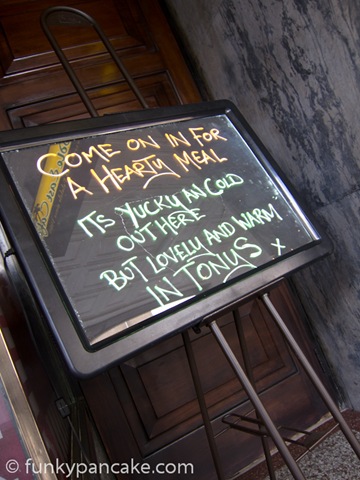 COME ON IN FOR
A HEARTY MEAL
ITS YUCKY AN COLD
OUT HERE
BUT LOVELY AND WARM
IN TONYS X
© funkypancake.com